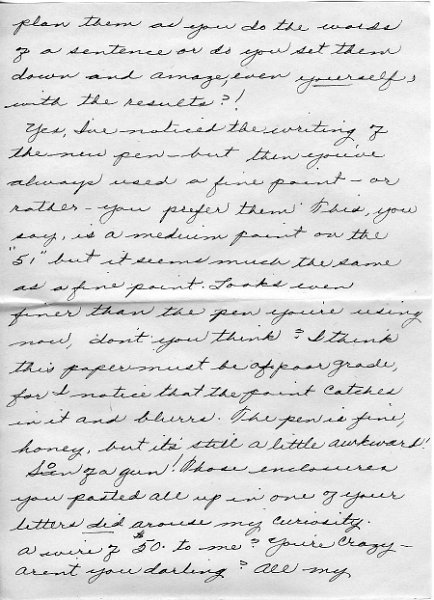 plan them as you do the words
of a sentence or do you set them
down and amaze, even yourself,
with the results?!
Yes, I've noticed the writing of
the new pen - but then you've
always used a fine point - or
rather - you prefer them. This, you
say, is a medium point on the
"51" but it seems much the same
as a fine point. Looks even
finer than the pen you're using
now, don't you think? I think
this paper must be of poor grade,
for I notice that the point catches
in it and blurrs. The pen is fine,
honey, but it's still a little awkward!
Son of a gun! Those enclosures
you pasted all up in one of your
letters did arouse my curiosity.
A wire of $50. to me? You're crazy -
aren't you darling? All my